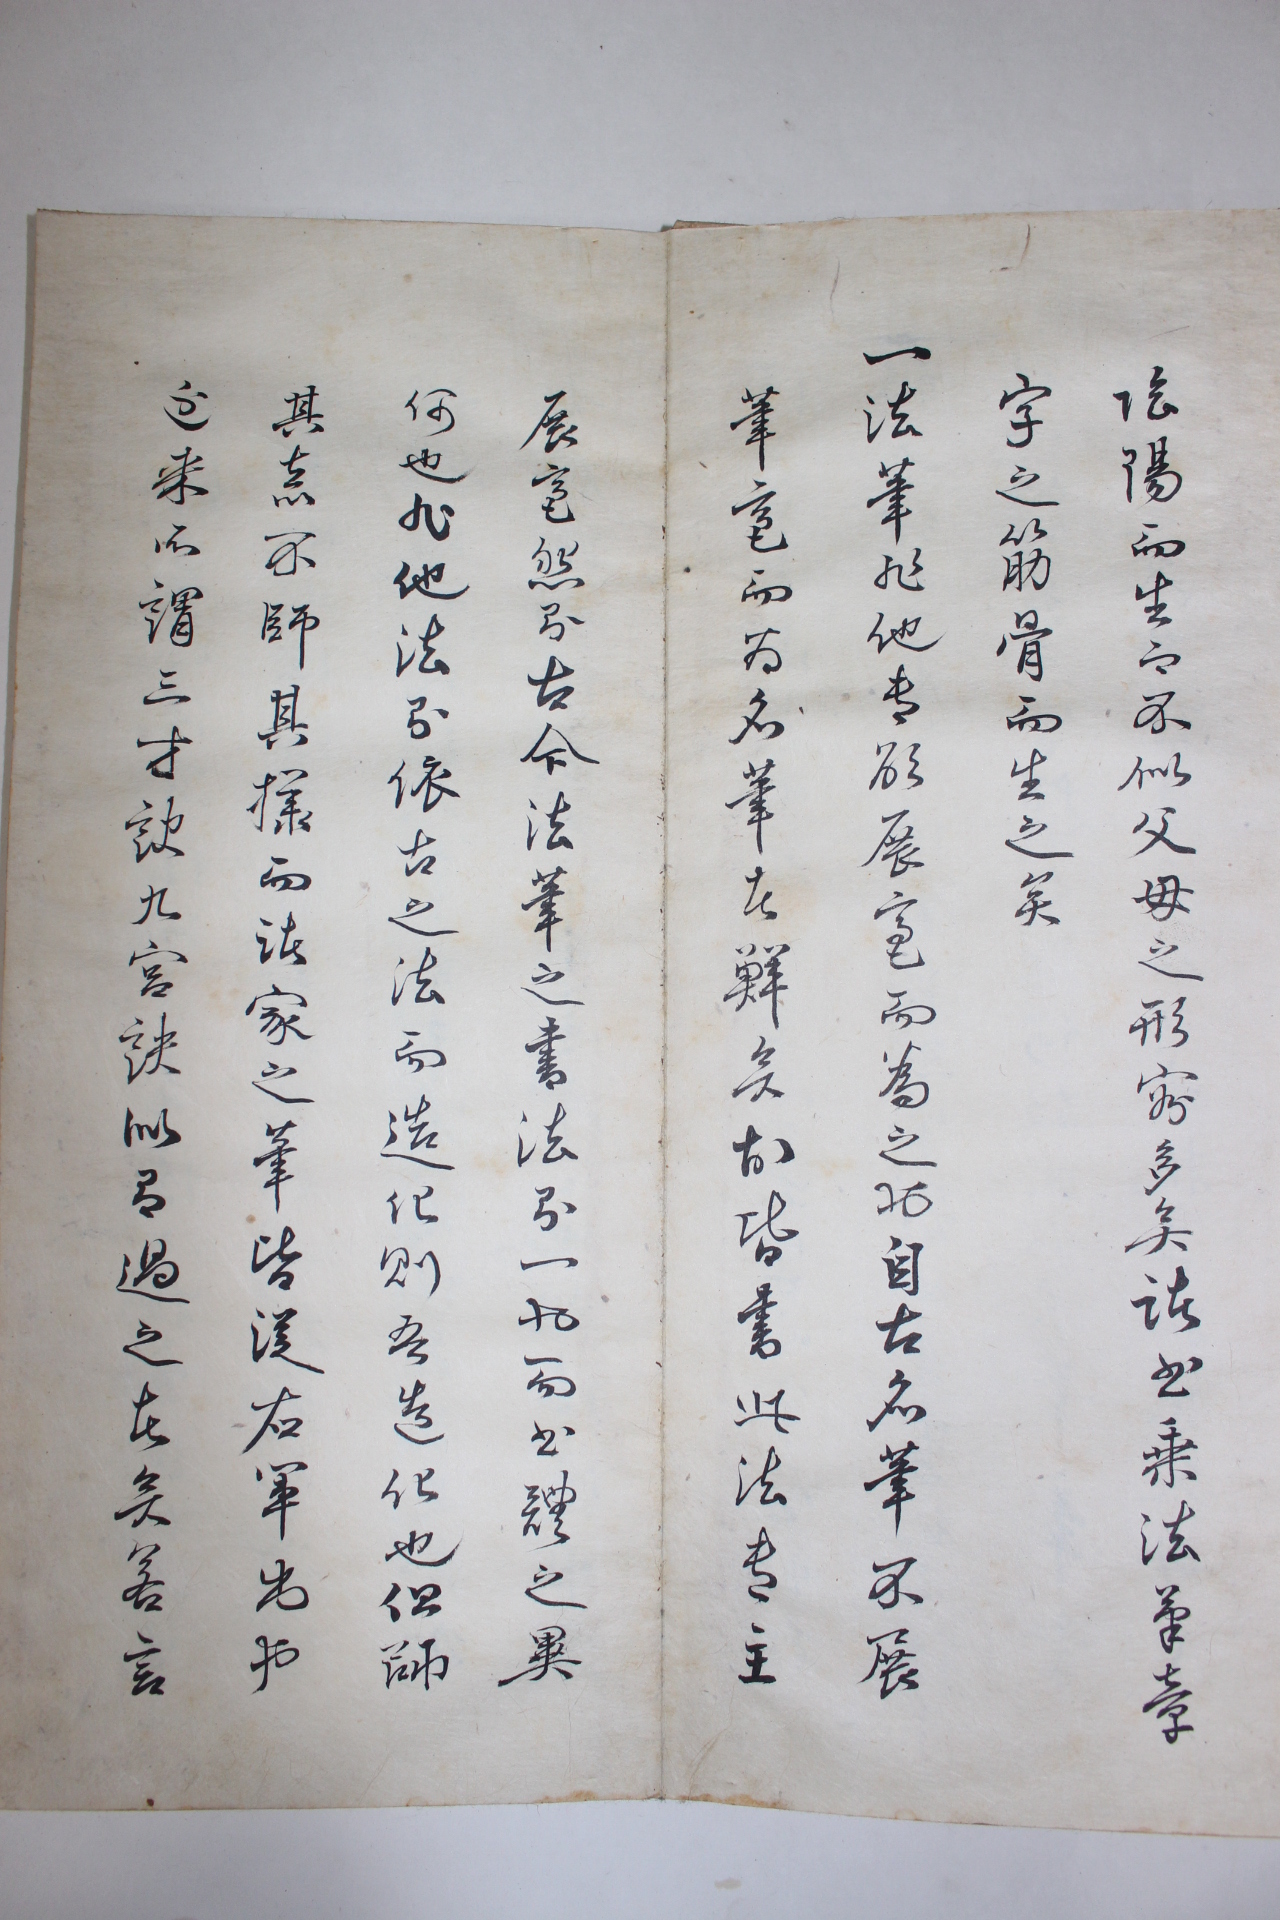 陰陽而生之不似父母之形容多矣諸書乘法筆章
字之筋骨而生之矣
一法筆非他專於展毫而為之非自古名筆不展
筆毫而為名筆者鮮矣故皆書此法專主
展毫然則古今法筆之書法則一也而書體之異
何也非他法則依古之法而造化則吾造化也但師
其意不師其樣而諸家之筆皆從右軍出也
近來所謂三才訣九宮訣似有過之者矣若言